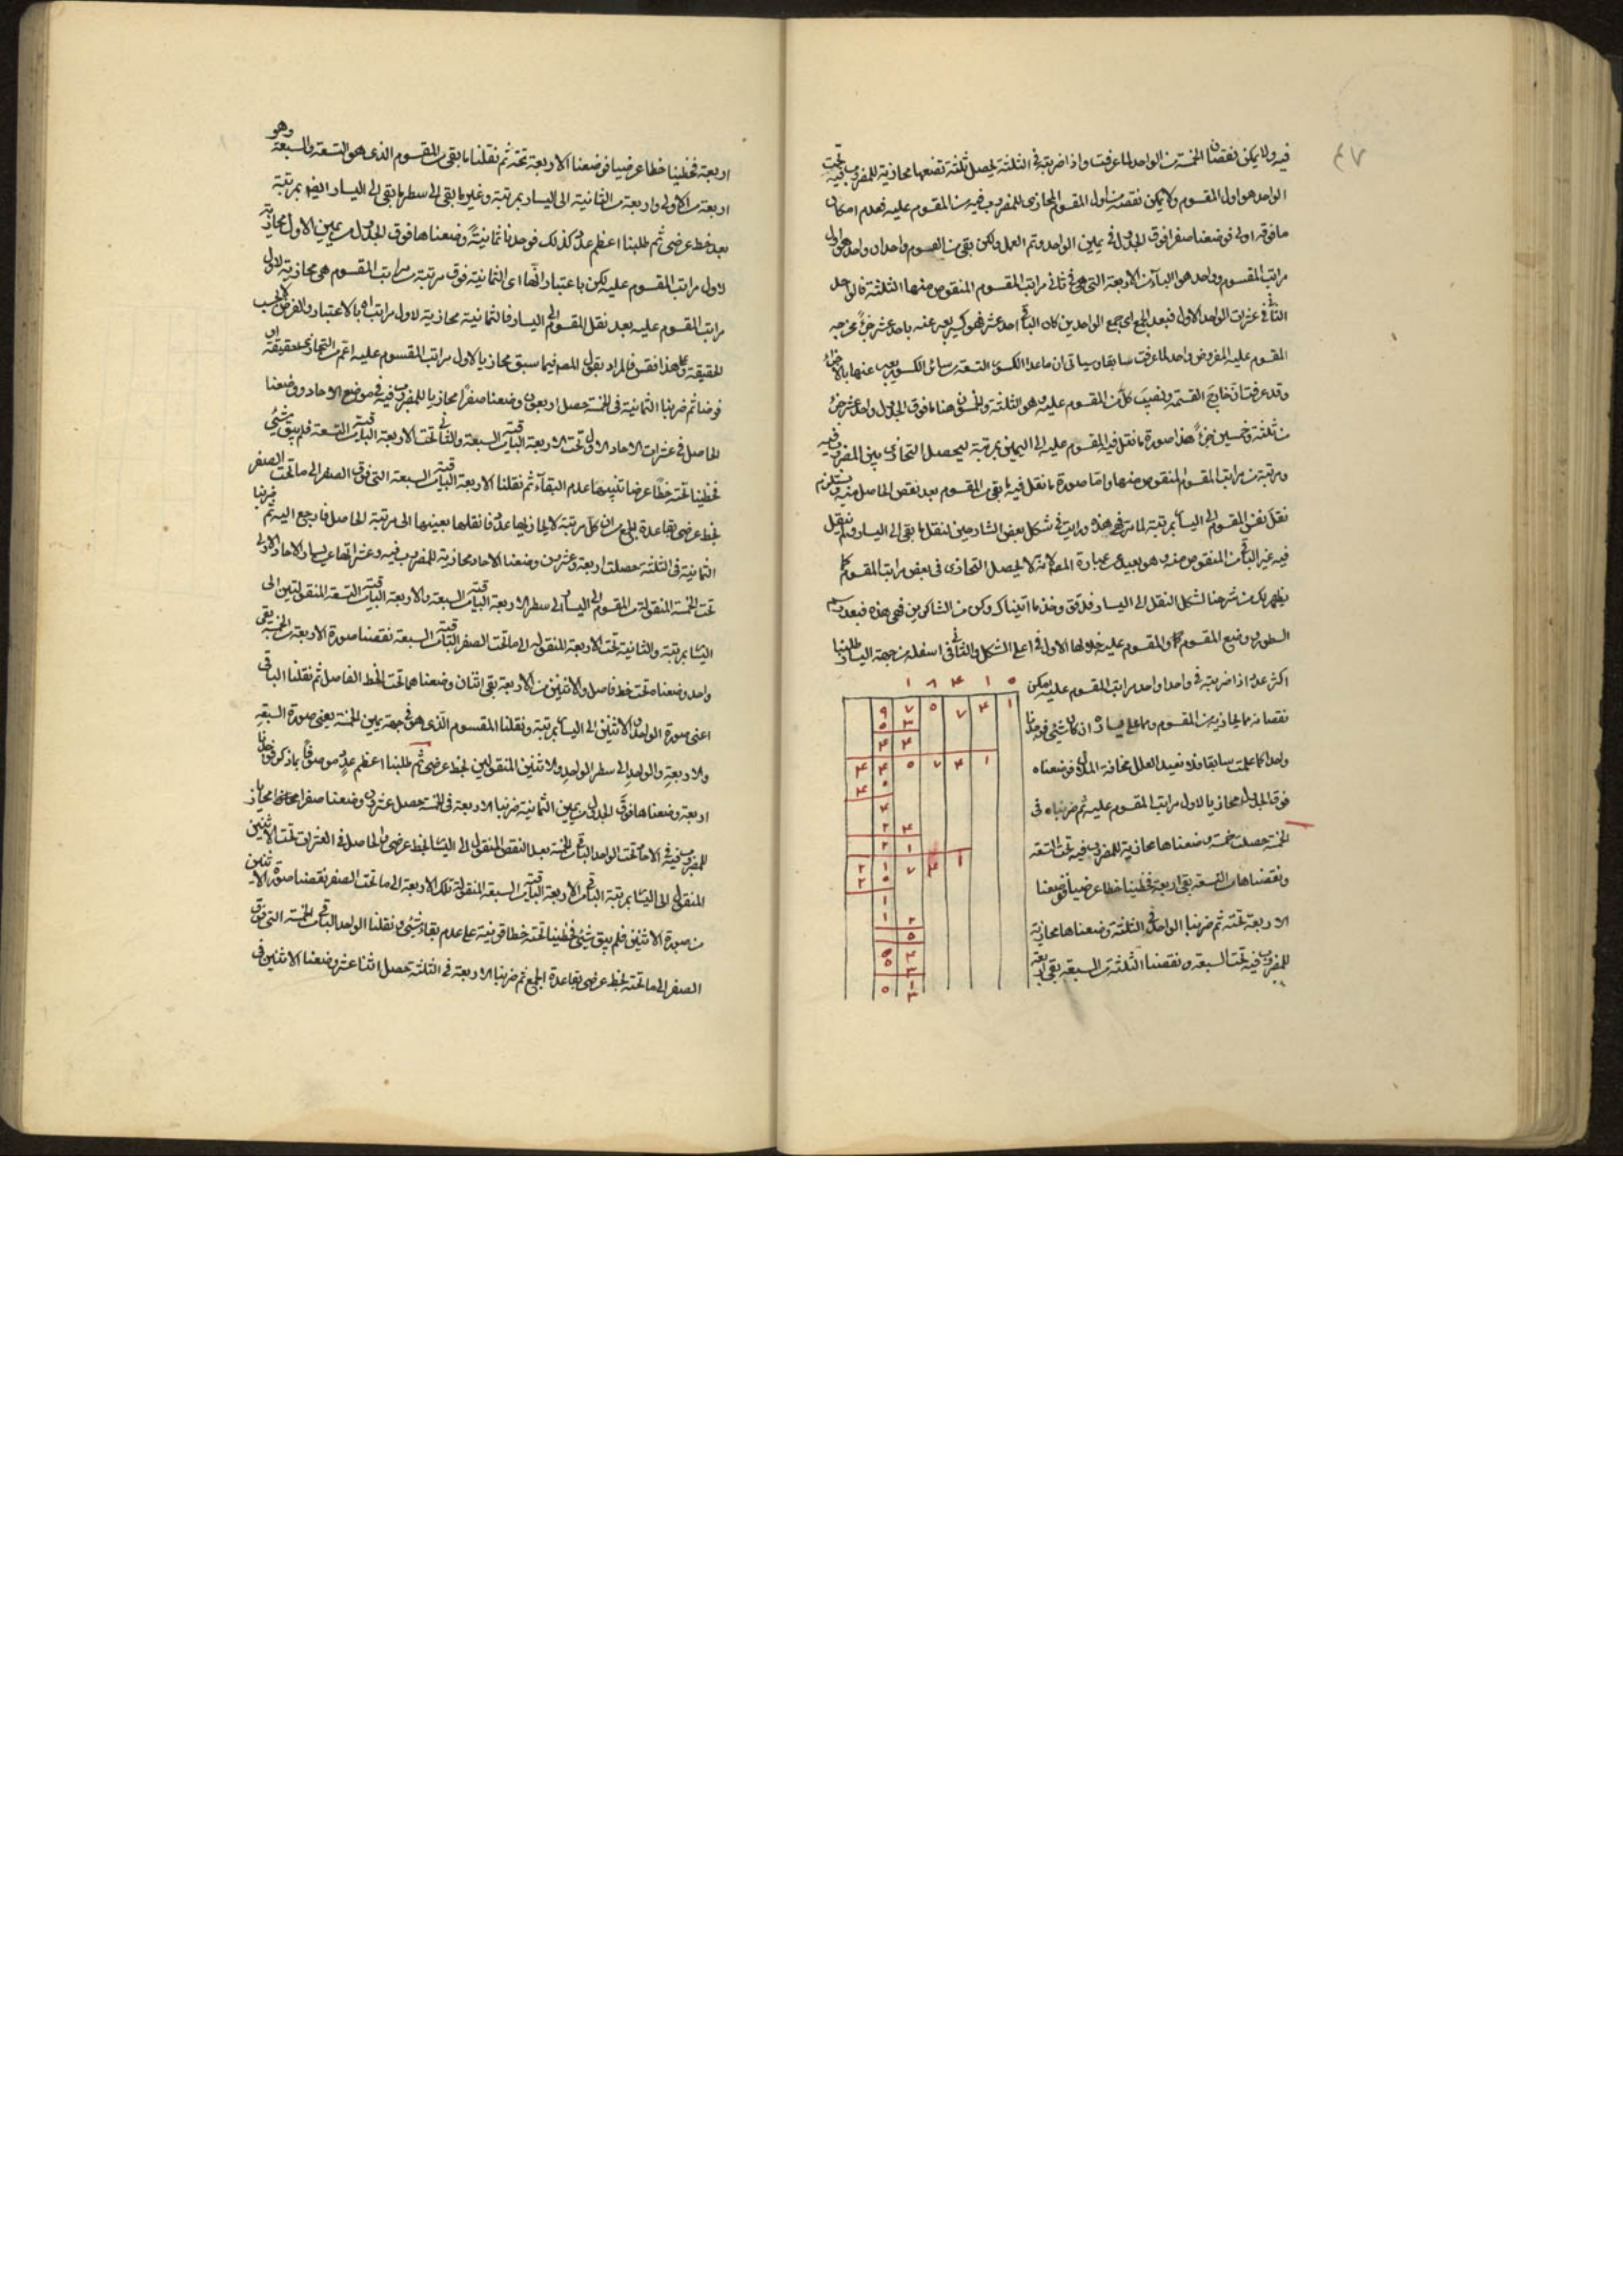 ٤٧
فيه ولا يمكن نقصان الخمسة من الواحد لما عرفت واذا ضربته في الثلثة يحصل ثلثة تضعها محاذية للمضروب فيه تحت
الواحد هو اول المقسوم ولا يمكن نقصه من اول المقسوم المحاذي للمضروب فيه من المقسوم عليه فعدم امكان
ما فوقه اولى فوضعنا صفرا فوق الجدول في يمين الواحد وتم العمل ولكن بقي من المقسوم واحدان واحد هو اول
مراتب المقسوم وواحد هو الباقي من الاربعة التي هي في ثاني مراتب المقسوم المنقوص منها الثلثة فالواحد
الثاني عشرات الواحد الاول فبعد الجمع اي جمع الواحدين كان الباقي احد عشر فهو كسر يعبر عنه باحد عشر جزءً مخرجه
المقسوم عليه المفروض واحدا لما عرفت سابقا وسياتي ان ما عدا الكسور التسعة من سائر الكسور يعبر عنها بالاجزاء
وقد عرفت ان خارج القسمة ونصيب كل من المقسوم عليه وهو الثلثة والخمسون هنا ما فوق الجدول واحد عشر جزء
من ثلثة وخمسين جزءً هذا صورة ما نقل فيه المقسوم عليه الى اليمين بمرتبة ليحصل التحاذي بين المضروب فيه
ومرتبة من مراتب المقسوم المنقوص منها واما صورة ما نقل فيه ما بقي من المقسوم بعد نقص الحاصل منه ويستلزم
نقل نفس المقسوم الى اليسار بمرتبة لما مر فهي هذه ورايت في شكل بعض الشارحين لنقل ما بقي الى اليسار ولم ينقل
فيه غير الباقي من المنقوص منه وهو بعيد عن عبارة المصـ لانه لا يحصل التحاذي في بعض مراتب المقسوم كما
يظهر لك من شرحنا لشكل النقل الى اليسار فدقق وخذ ما اتيناك وكن من الشاكرين فهي هذه فبعد رسم
السطور ووضع المقسوم والمقسوم عليه خلالها الاول في اعلى الشكل والثاني اسفله من جهة اليسار طلبنا
اكثر عدد اذا ضربته في واحد واحد من مراتب المقسوم عليه يمكن
نقصانه مما يحاذيه من المقسوم ومما على يساره ان كان شيئ فوجدنا
واحدا كما علمت سابقا فلا نعيد العلل مخافة الملال فوضعناه
فوق الجدول محاذيا لاول مراتب المقسوم عليه ثم ضربناه في
الخمسة حصلت خمسة وضعناها محاذية للمضروب فيه تحت التسعة
ونقصناها من التسعة بقي اربعة فخطينا خطا عرضيا فوضعنا
الاربعة تحته ثم ضربنا الواحد في الثلثة وضعناها محاذية
للمضروب فيه تحت السبعة ونقصنا الثلثة من السبعة بقي اربعة
١ ٨ ٤ ١ ٥
٩ ٧ ٥ ٧ ٤ ١
٥ ٣
٤ ٤
٤ ٤ ٥ ٧ ٤ ١
٤ ٥
٤
٢ ٤
٢ ١
٢ ١ ٧ ٤ ١
٢ ٥
١
١ ٢
٥
٥ ٢
٥ ٣
١
٥ ٣
اربعة فخطينا خطا عرضيا فوضعنا الاربعة تحته ثم نقلنا ما بقي من المقسوم الذي هو التسعة والسبعة وهو
اربعة من الاولى واربعة من الثانية الى اليسار بمرتبة وغير ما بقي الى سطر ما بقي الى اليسار ايضا بمرتبة
بعد خط عرضي ثم طلبنا اعظم عدد كذلك فوجدنا ثمانية وضعناها فوق الجدول من يمين الاول محاذية
لاول مراتب المقسوم عليه لكن باعتبار انها اي الثمانية فوق مرتبة من مراتب المقسوم هي محاذية لاول
مراتب المقسوم عليه بعد نقل المقسوم الى اليسار فالثمانية محاذية لاول مراتبه بالاعتبار والفرض لا بحسب
الحقيقة وعلى هذا فقس فالمراد بقول المصـ فيما سبق محاذيا لاول مراتب المقسوم عليه اعم من التحاذي حقيقة او
فرضا ثم ضربنا الثمانية في الخمسة حصل اربعون وضعنا صفرا محاذيا للمضروب فيه في موضع الاحاد ووضعنا
الحاصل في عشرات الاحاد الاول تحت الاربعة الباقية من السبعة والثاني تحت الاربعة الباقية من التسعة فلم يبق شيئ
فخطينا تحته خطا عرضيا تنبيها على عدم البقاء ثم نقلنا الاربعة الباقية من السبعة التي فوق الصفر الى ما تحت الصفر
بخط عرضي بقاعدة الجمع من ان كل مرتبة لا يحاذيها عدد فانقلها بعينها الى مرتبة الحاصل فارجع اليه ثم ضربنا
الثمانية في الثلثة حصلت اربعة وعشرون وضعنا الاحاد محاذية للمضروب فيه وعشراتها على يسار الاحاد الاولى
تحت الخمسة المنقولة من المقسوم الى اليسار الى سطر الاربعة الباقية من السبعة والاربعة الباقية من التسعة المنقولتين الى
اليسار بمرتبة والثانية تحت الاربعة المنقولة الى ما تحت الصفر الباقية من السبعة نقصنا صورة الاربعة من الخمسة بقي
واحد وضعناه تحت خط فاصل والاثنين من الاربعة بقي اثنان وضعناهما تحت الخط الفاصل ثم نقلنا الباقي
اعني صورة الواحد والاثنين الى اليسار بمرتبة ونقلنا المقسوم الذي هو في جهة يمين الخمسة يعني صورة السبعة
والاربعة والواحد الى سطر الواحد والاثنين المنقولين بخط عرضي ثم طلبنا اعظم عدد موصوفا بما ذكر فوجدنا
اربعة وضعناها فوق الجدول من يمين الثمانية ضربنا الاربعة في الخمسة حصل عشرون وضعنا صفرا محاذيا
للمضروب فيه في الاحاد تحت الواحد الباقي من الخمسة بعد النقص المنقول الى اليسار بخط عرضي والحاصل في العشرات تحت الاثنين
المنقول الى اليسار بمرتبة الباقي من الاربعة الباقية من السبعة المنقولة تلك الاربعة الى ما تحت الصفر نقصنا صورة الاثنين
من صورة الاثنين فلم يبق شيئ فخطينا تحته خطا قرينة على عدم بقاء شيئ ونقلنا الواحد الباقي من الخمسة التي فوق
الصفر الى ما تحته بخط عرضي بقاعدة الجمع ثم ضربنا الاربعة في الثلثة حصل اثنا عشر وضعنا الاثنين في